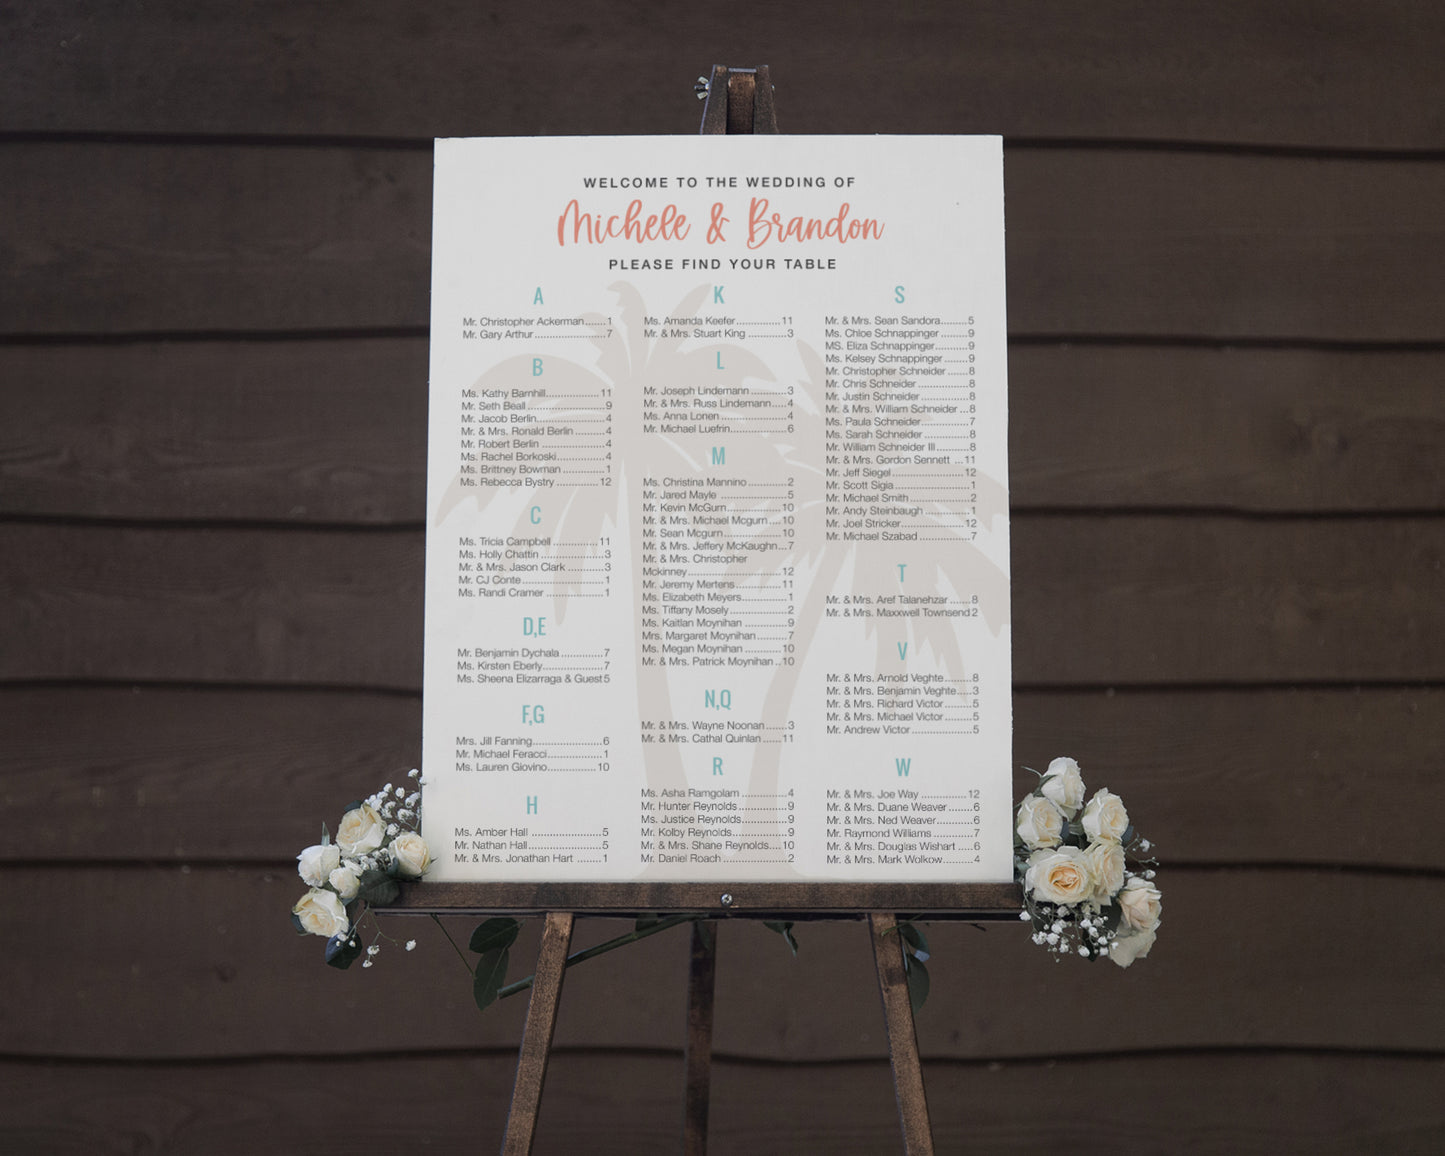 WELCOME TO THE WEDDING OF
Michele & Brandon
PLEASE FIND YOUR TABLE
A
Mr. Christopher Ackerman.......1
Mr. Gary Arthur.....................7
B
Ms. Kathy Barnhill.................11
Mr. Seth Beall.......................9
Mr. Jacob Berlin....................4
Mr. & Mrs. Ronald Berlin.........4
Mr. Robert Berlin...................4
Ms. Rachel Borkoski..............4
Ms. Brittney Bowman............1
Ms. Rebecca Bystry..............12
C
Ms. Tricia Campbell..............11
Ms. Holly Chattin..................3
Mr. & Mrs. Jason Clark...........3
Mr. CJ Conte........................1
Ms. Randi Cramer.................1
D,E
Mr. Benjamin Dychala.............7
Ms. Kirsten Eberly..................7
Ms. Sheena Elizarraga & Guest 5
F,G
Mrs. Jill Fanning.....................6
Mr. Michael Feracci.................1
Ms. Lauren Giovino................10
H
Ms. Amber Hall.....................5
Mr. Nathan Hall.....................5
Mr. & Mrs. Jonathan Hart........1
K
Ms. Amanda Keefer...............11
Mr. & Mrs. Stuart King............3
L
Mr. Joseph Lindemann...........3
Mr. & Mrs. Russ Lindemann.....4
Ms. Anna Lonen....................4
Mr. Michael Luefrin................6
M
Ms. Christina Mannino............2
Mr. Jared Mayle....................5
Mr. Kevin McGurn.................10
Mr. & Mrs. Michael Mcgurn....10
Mr. Sean Mcgurn..................10
Mr. & Mrs. Jeffery McKaughn...7
Mr. & Mrs. Christopher
Mckinney.............................12
Mr. Jeremy Mertens..............11
Ms. Elizabeth Meyers.............1
Ms. Tiffany Mosely.................2
Ms. Kaitlan Moynihan.............9
Mrs. Margaret Moynihan.........7
Ms. Megan Moynihan............10
Mr. & Mrs. Patrick Moynihan..10
N,Q
Mr. & Mrs. Wayne Noonan.......3
Mr. & Mrs. Cathal Quinlan......11
R
Ms. Asha Ramgolam..............4
Mr. Hunter Reynolds...............9
Ms. Justice Reynolds.............9
Mr. Kolby Reynolds................9
Mr. & Mrs. Shane Reynolds....10
Mr. Daniel Roach...................2
S
Mr. & Mrs. Sean Sandora........5
Ms. Chloe Schnappinger.........9
MS. Eliza Schnappinger..........9
Ms. Kelsey Schnappinger........9
Mr. Christopher Schneider.......8
Mr. Chris Schneider................8
Mr. Justin Schneider...............8
Mr. & Mrs. William Schneider...8
Ms. Paula Schneider...............7
Ms. Sarah Schneider..............8
Mr. William Schneider III..........8
Mr. & Mrs. Gordon Sennett...11
Mr. Jeff Siegel......................12
Mr. Scott Sigia.......................1
Mr. Michael Smith..................2
Mr. Andy Steinbaugh..............1
Mr. Joel Stricker...................12
Mr. Michael Szabad................7
T
Mr. & Mrs. Aref Talanehzar.......8
Mr. & Mrs. Maxxwell Townsend 2
V
Mr. & Mrs. Arnold Veghte.........8
Mr. & Mrs. Benjamin Veghte.....3
Mr. & Mrs. Richard Victor.........5
Mr. & Mrs. Michael Victor.........5
Mr. Andrew Victor...................5
W
Mr. & Mrs. Joe Way..............12
Mr. & Mrs. Duane Weaver........6
Mr. & Mrs. Ned Weaver...........6
Mr. Raymond Williams............7
Mr. & Mrs. Douglas Wishart.....6
Mr. & Mrs. Mark Wolkow.........4